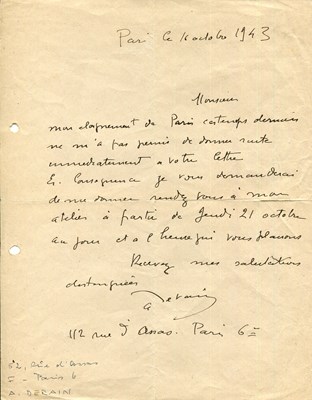 Paris le 16 octobre 1943
Monsieur
mon eloignement de Paris ces temps derniers
ne m'a pas permis de donner suite
immediatement a votre lettre
En Consequence je vous demanderai
de me donner rendez vous a mon
atelier à partir de Jeudi 21 octobre
au jour et a l'heure qui vous plairont
Recevez mes salutations
distinguées
a derain
112 rue d'Assas. Paris 6e
rue d'Assas
Paris 6
A. DERAIN